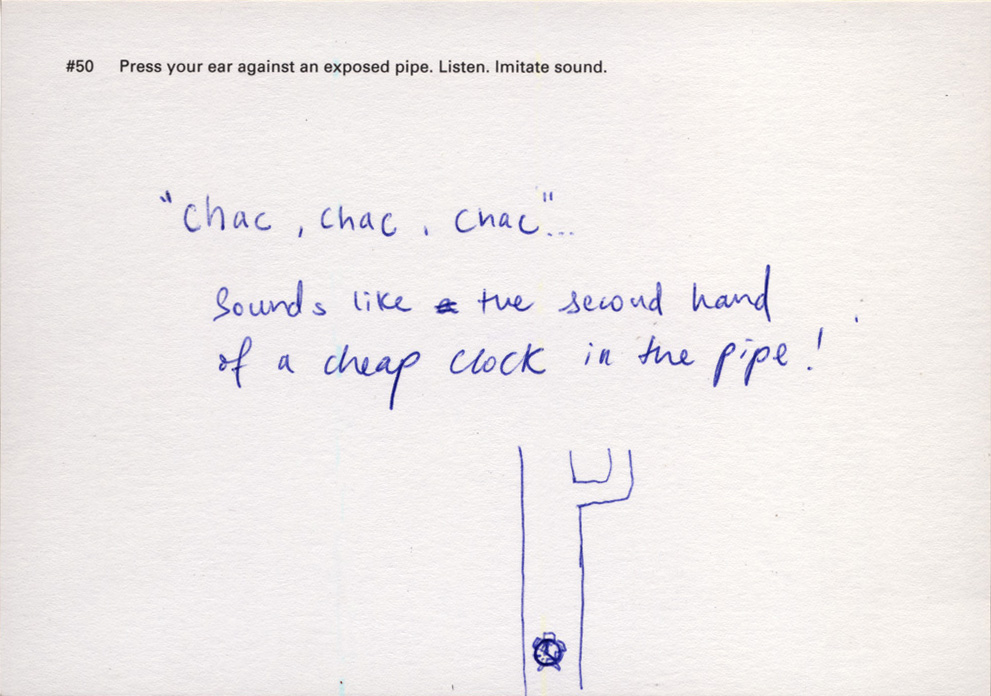 #50 Press your ear against an exposed pipe. Listen. Imitate sound.
"Chac, chac, chac"...
Sounds like the second hand
of a cheap clock in the pipe!